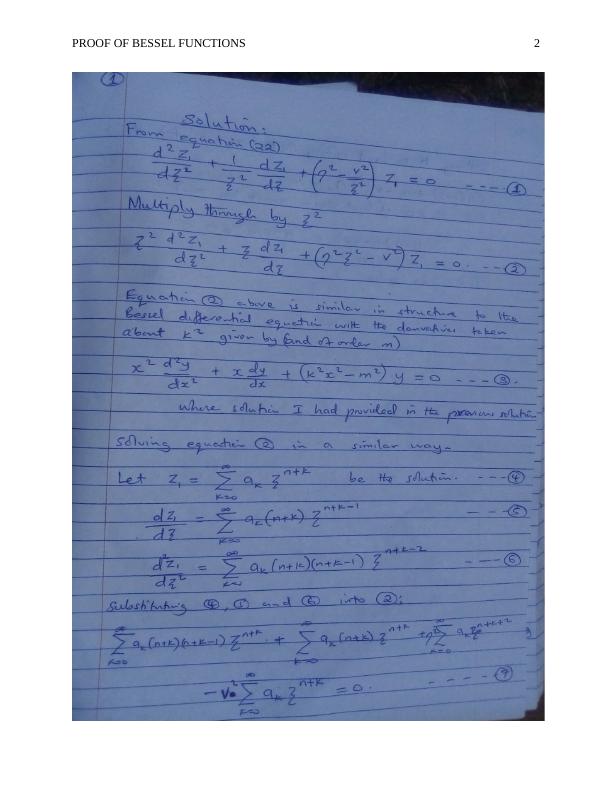 PROOF OF BESSEL FUNCTIONS 2
①
Solution:
From equation (22)
d²Z₁/dξ² + 1/ξ² dZ₁/dξ + (η² - v²/ξ²) Z₁ = 0 ---- ①
Multiply through by ξ²
ξ² d²Z₁/dξ² + ξ dZ₁/dξ + (η²ξ² - v²) Z₁ = 0. --- ②
Equation ② above is similar in structure to the
Bessel differential equation with the derivatives taken
about k² given by (and of order m)
x² d²y/dx² + x dy/dx + (k²x² - m²) y = 0 --- ③.
where solution I had provided in the previous solution
Solving equation ② in a similar way-
Let Z₁ = ∞∑k=0 aₖ ξⁿ⁺ᵏ be the solution. ---④
dZ₁/dξ = ∞∑k=0 aₖ(n+k) ξⁿ⁺ᵏ⁻¹ ---⑤
d²Z₁/dξ² = ∞∑k=0 aₖ(n+k)(n+k-1) ξⁿ⁺ᵏ⁻² ---⑥
Substituting ④, ⑤ and ⑥ into ②;
∞∑k=0 aₖ(n+k)(n+k-1) ξⁿ⁺ᵏ + ∞∑k=0 aₖ(n+k) ξⁿ⁺ᵏ + η² ∞∑k=0 aₖξⁿ⁺ᵏ⁺²
- v² ∞∑k=0 aₖ ξⁿ⁺ᵏ = 0. ----⑦